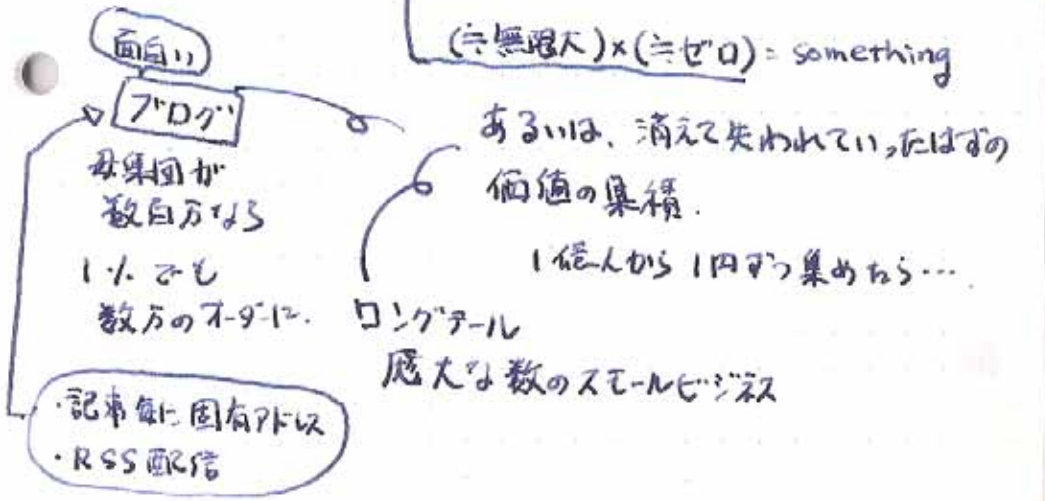 面白い
ブログ
母集団が
数百万なら
1%でも
数万のオーダーに.
・記事毎に固有アドレス
・RSS配信
(≒無限大)×(≒ゼロ)= something
あるいは、消えて失われていったはずの
価値の集積.
1億人から1円ずつ集めたら…
ロングテール
厖大な数のスモールビジネス